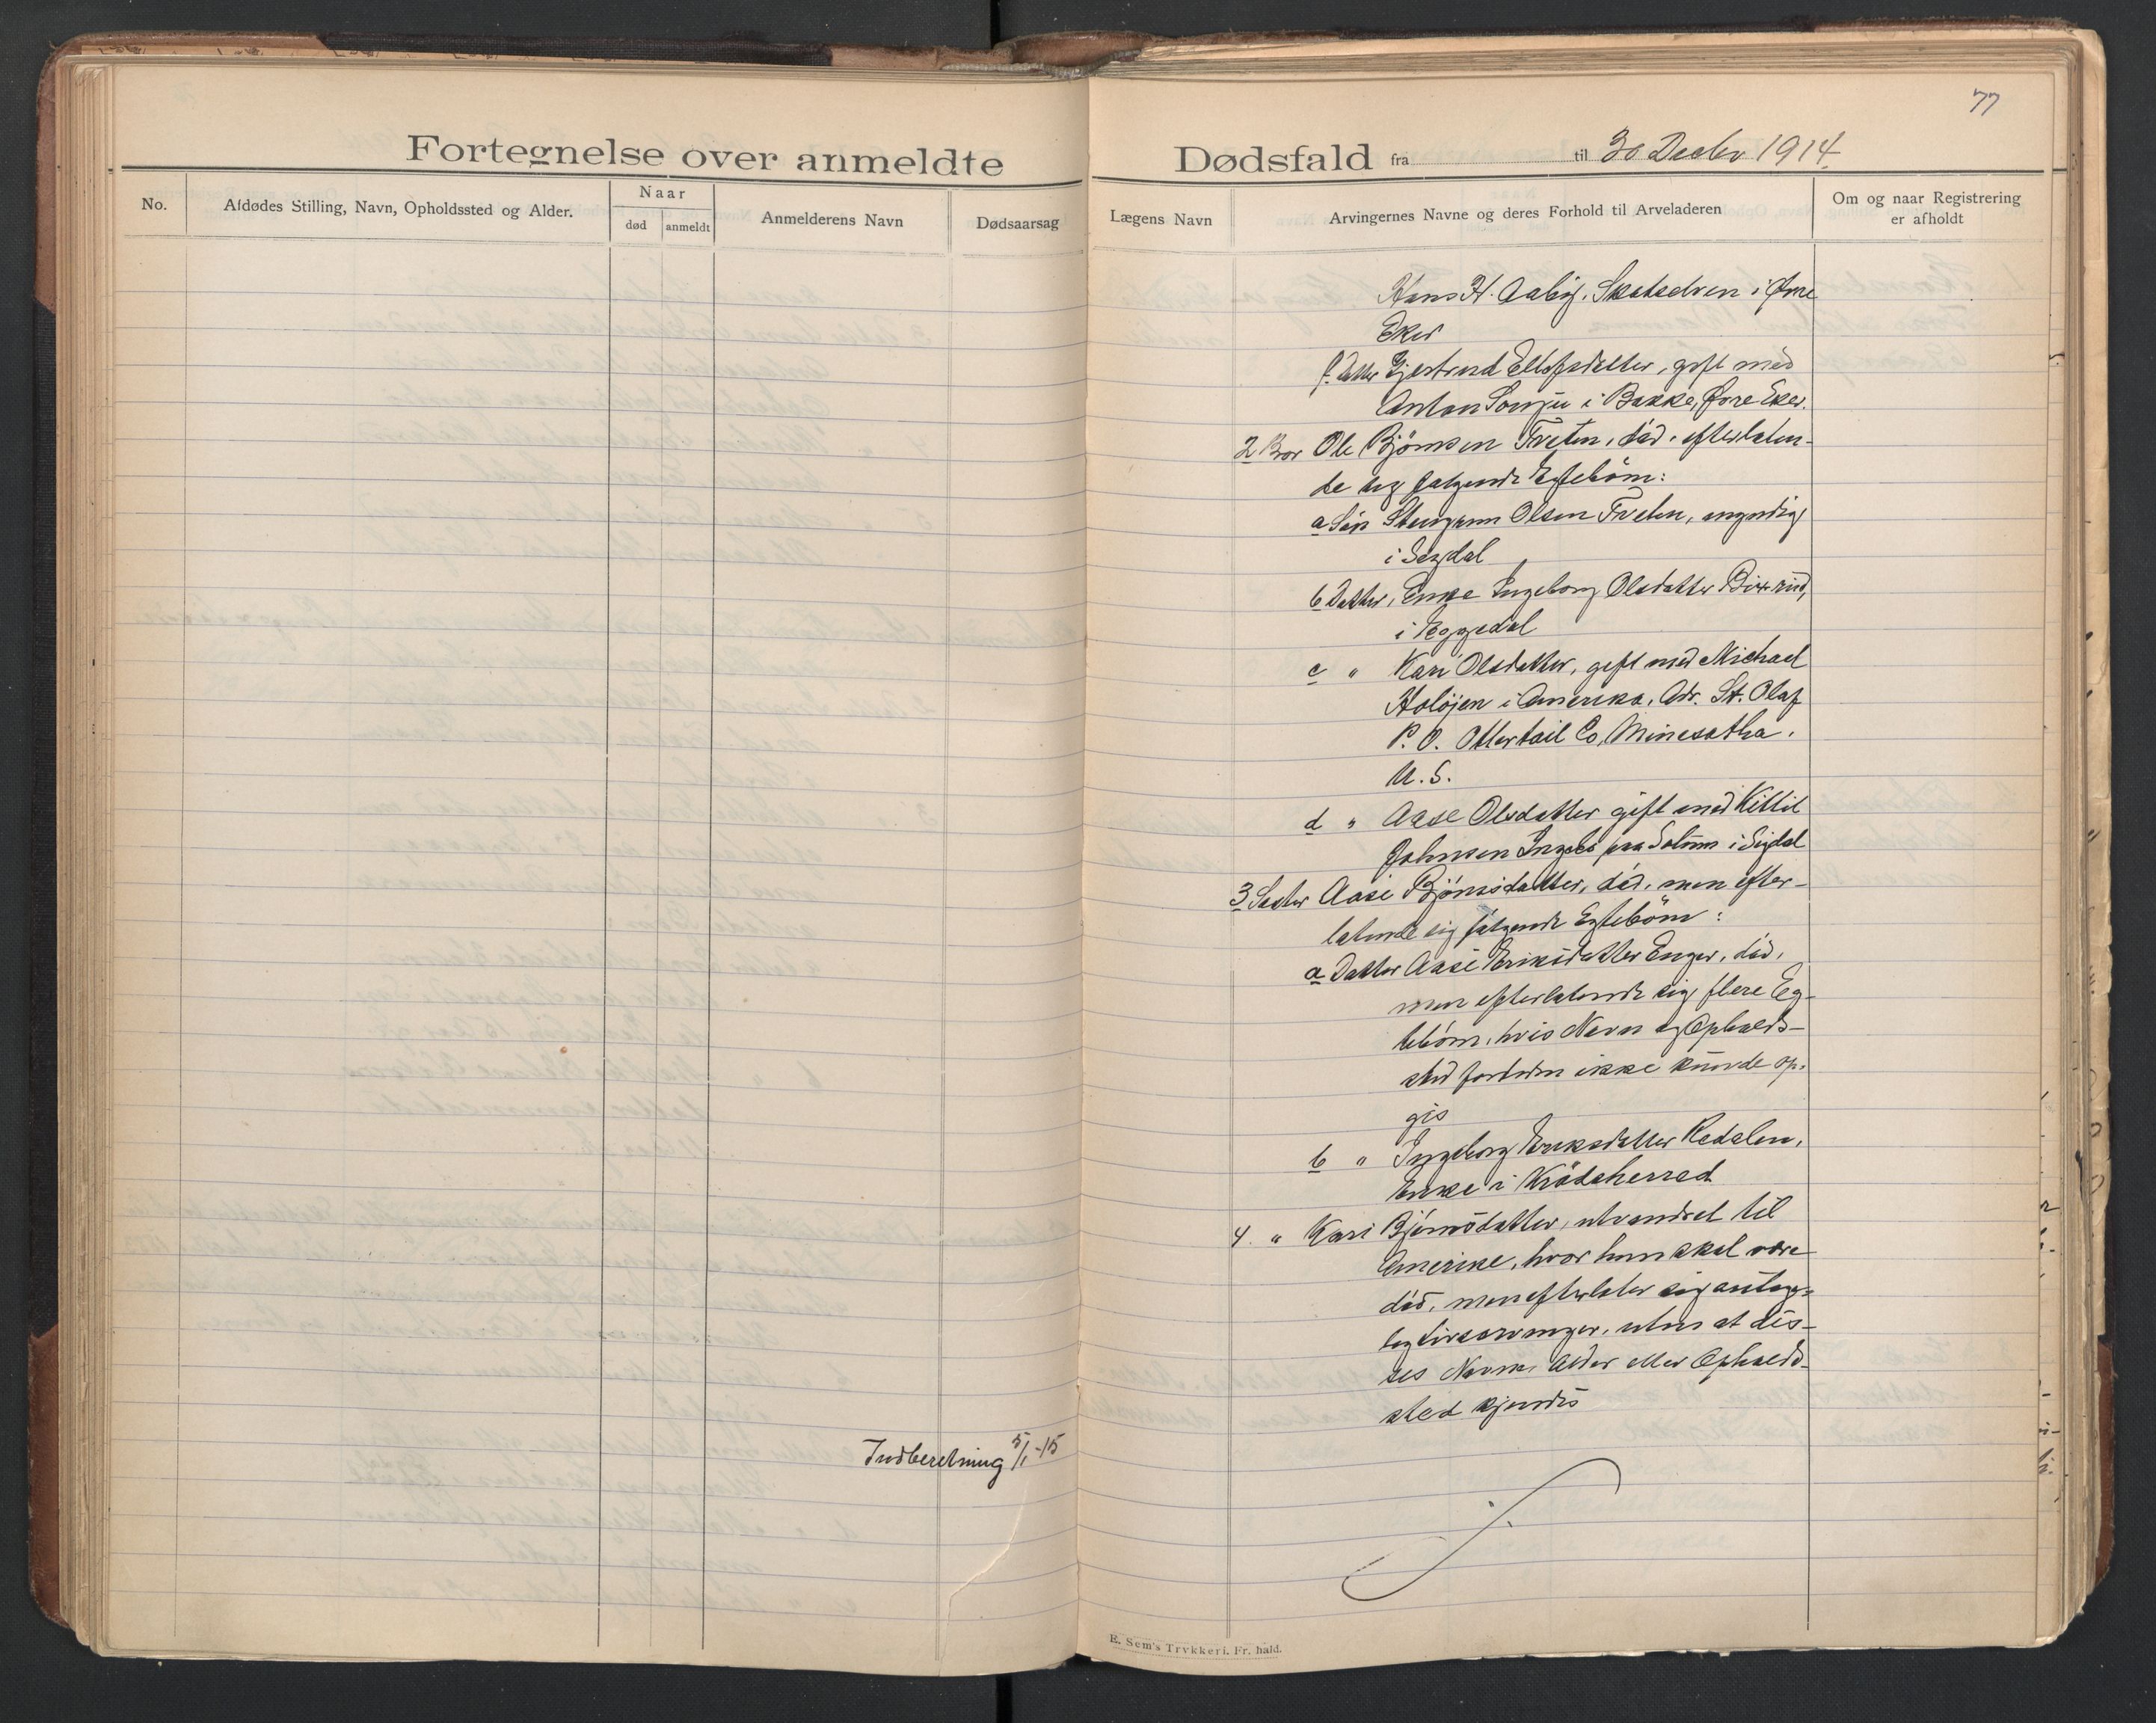 77
Fortegnelse over anmeldte Dødsfald fra til 30 Decbr 1914.
No.
Afdødes Stilling, Navn, Opholdssted og Alder.
Naar
død
anmeldt
Anmelderens Navn
Dødsaarsag
Lægens Navn
Arvingernes Navne og deres Forhold til Arveladeren
Om og naar Registrering
er afholdt
Hans H. Aaby, Skotselven i Øvre
Eker
f. Datter Gjertrud Ellefsdatter, gift med
Anton i Bakke, Øvre Eker.
2 Bror Ole Björnsen Tveten, död, efterlaten-
de sig følgende Egtebörn:
a Sön Olsen Tveten, myndig
i Sigdal
b Datter, Enke Ingeborg Olsdatter
i Eggedal
c " Kari Olsdatter, gift med Michael
i Amerika, Adr. St. Olaf
P. O. Ottertail Co, Minesotha.
U. S.
d " Aase Olsdatter gift med Kittil
Johnsen paa Solum i Sigdal
3 Søster Aase Björnsdatter, död, men efter-
latende sig følgende Egtebörn:
a Datter Aase Eriksdatter Enger, död,
men efterlatende sig flere Eg-
tebörn, hvis Navn og Opholds-
sted fortiden ikke kunde op-
gis
b " Ingeborg Eriksdatter Redalen,
Enke i Krödsherred
4. " Kari Björnsdatter, utvandret til
Amerika, hvor hun skal være
död, men efterlater sig antage-
lig Livsarvinger, uten at dis-
ses Navne, Alder eller Opholds-
sted kjendes
Indberetning 5/1-15
E. Sem's Trykkeri, Fr. hald.